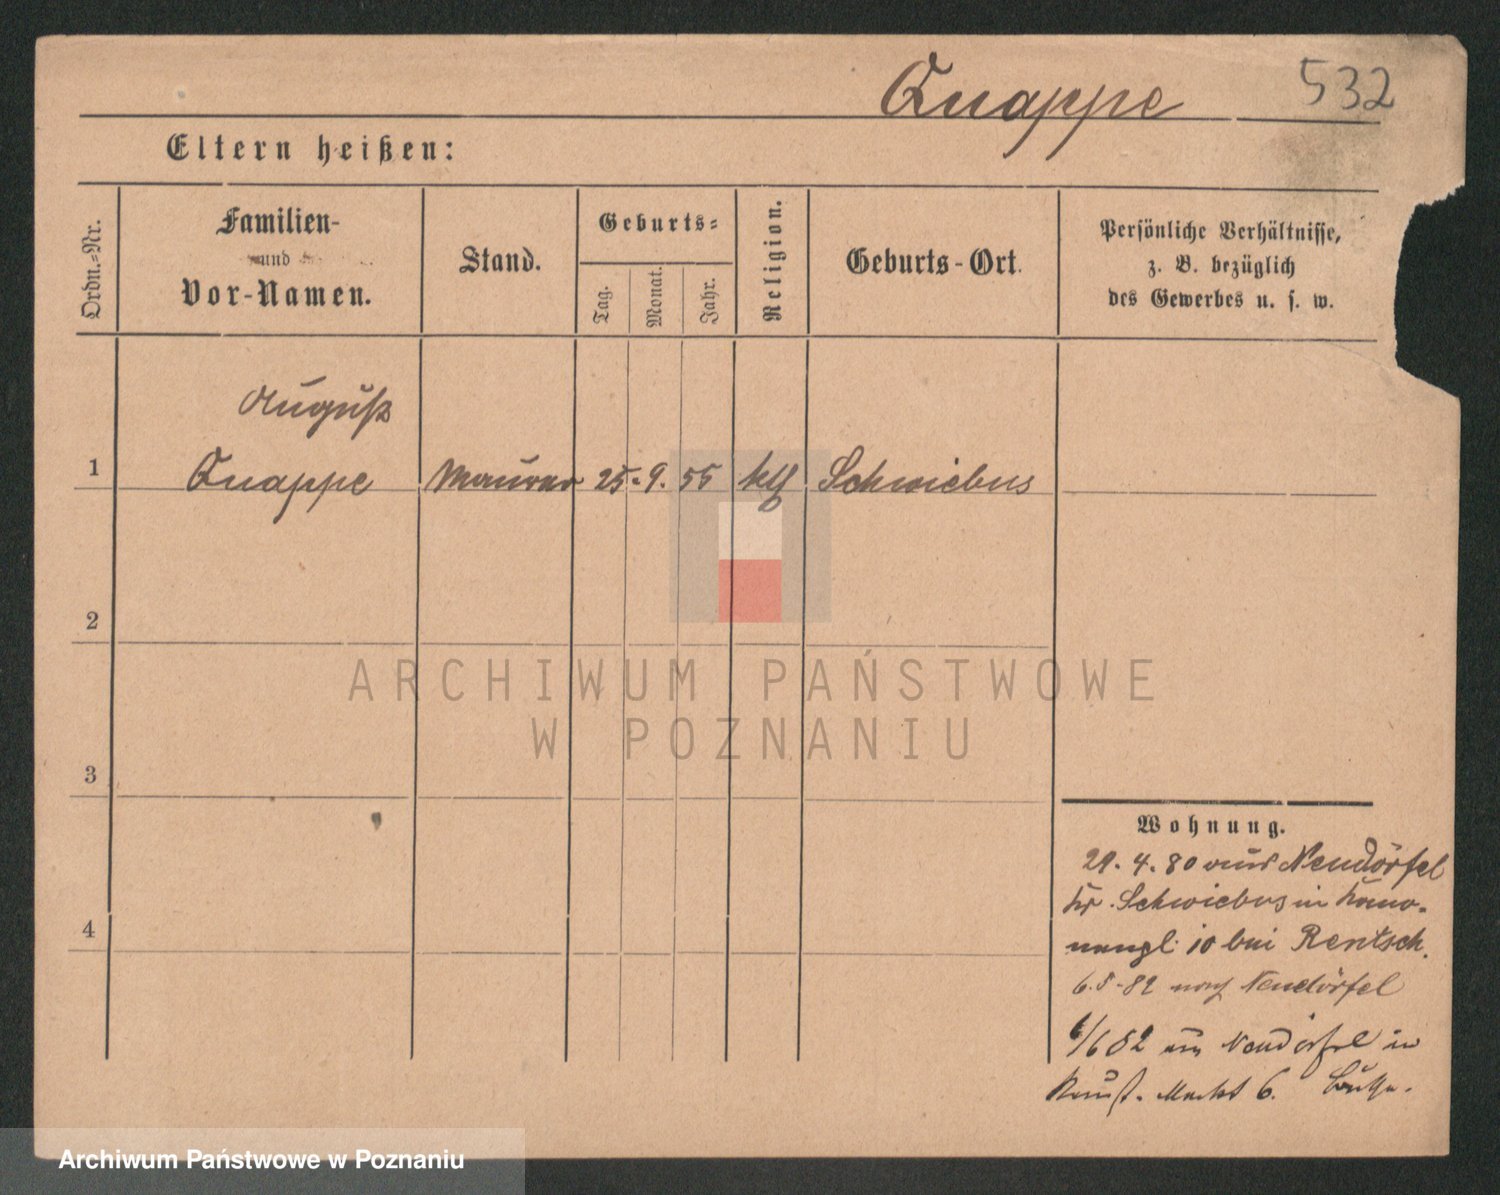 Knappe 532
Eltern heißen:
Ordn.-Nr.
Familien-
und
Vor-Namen.
Stand.
Geburts-
Tag.
Monat.
Jahr.
Religion.
Geburts-Ort.
Persönliche Verhältnisse,
z. B. bezüglich
des Gewerbes u. s. w.
August
1 Knappe Maurer 25. 9. 55 ktl Schwiebus
2
3
4
Wohnung.
29. 4. 80 aus Neudörfel
Kr. Schwiebus in
10 bei Rentsch.
6. 5. 82 nach Neudörfel
6/6 82 aus Neudörfel in
Neust. Markt 6.
ARCHIWUM PAŃSTWOWE
W POZNANIU
Archiwum Państwowe w Poznaniu